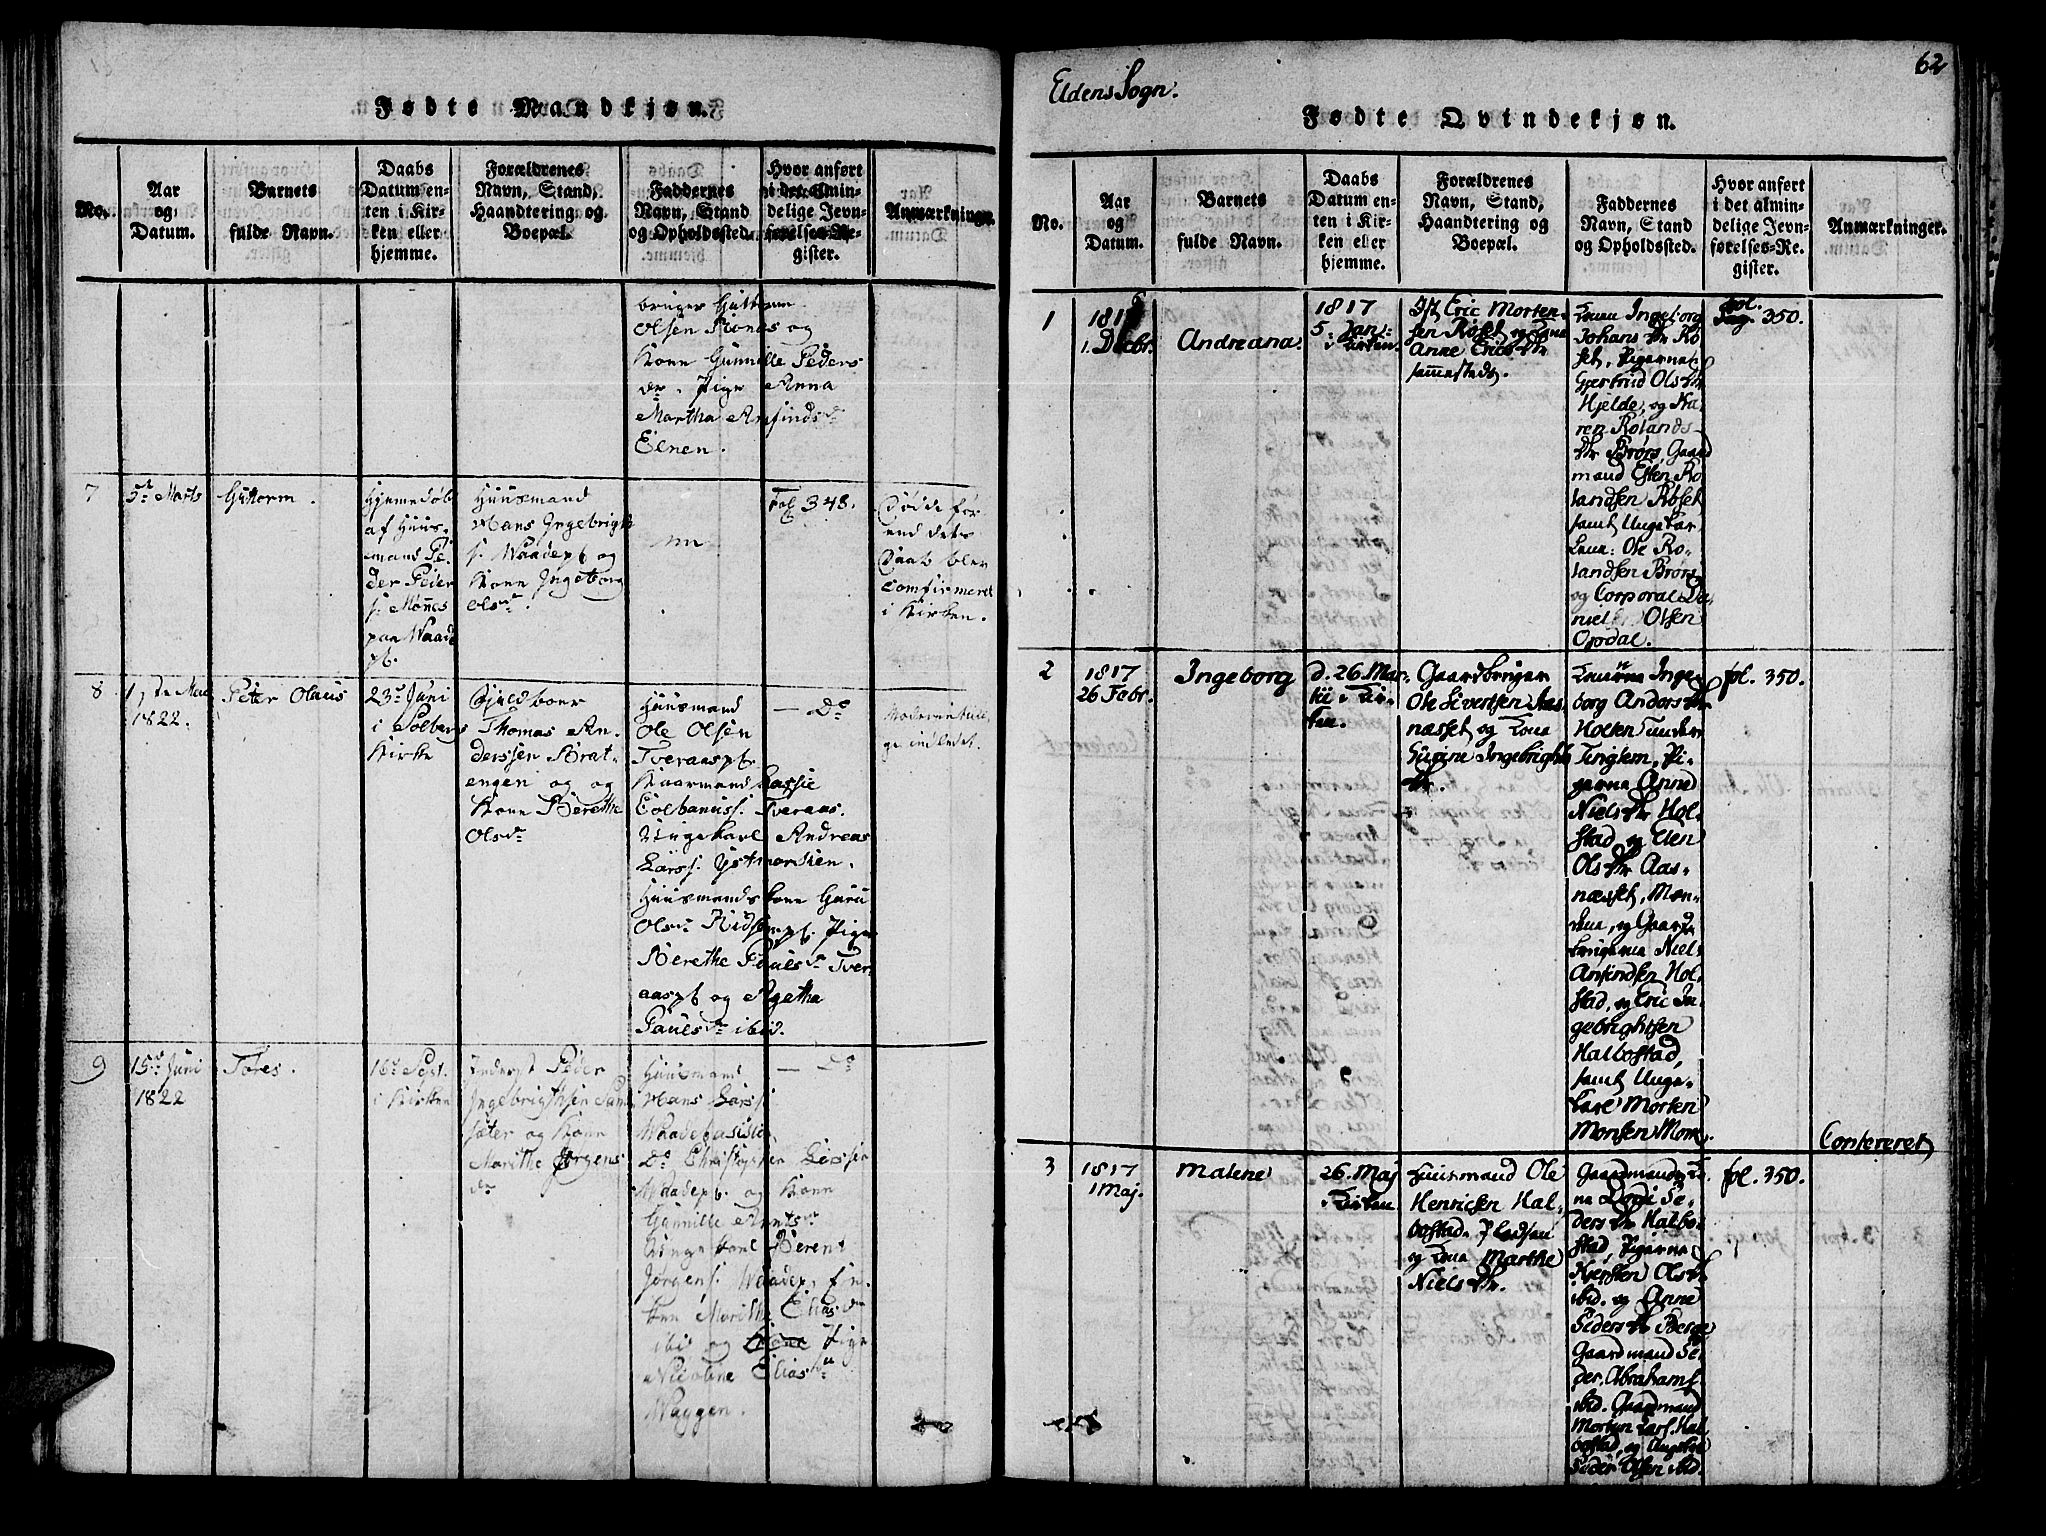 Fødte Mandkjøn.
No.
Aar
og
Datum.
Barnets
fulde Navn.
Daabs
Datum en-
ten i Kir-
ken eller
hjemme.
Forældrenes
Navn, Stand,
Haandtering og
Boepæl.
Faddernes
Navn, Stand
og Opholdssted.
Hvor anført
i det almin-
delige Jevn-
førelses-Re-
gister.
Anmærkninger.
bruger Guttorm
Olsen og
Kone Gunnille Peders
dr. Pige Anna
Martha Arnfindsdr
Elnen.
7
5te Marts
Guttorm.
Hjemedøb
af Huus-
mand Pe-
der Peder
s. Mønes
paa Waade
pl.
Huusmand
Hans Ingebrigt
s. Waadepl og
Kone Ingeborg
Olsdr
Fol 348.
Døde før
end dets
Daab blev
Comfirmeret
i Kirken.
8
1822.
Peter Olaus
23de Juni
i Solberg
Kirke
Thomas An-
derssen Brat-
engen og og
Kone Berethe
Olsdr
Huusmand
Ole Olsen
Tveraaspl.
Lassie
Colbanuss. Tveraas.
Ungekarl Andreas
Larss. Ystmarkien.
Huusmands kone Guru
Olsdr Pige
Berethe Pauelsdr Tver
aaspl og Agetha
Pauelsdr ibid.
— Do
9
15de Juni
1822
Tøres.
16de Sept.
i Kirken
Peder
Ingebrigthsen
sæter og Kone
Marithe Jørgens
dr
Huusmand
Hans Larss.
Do Christopher
Waadepl. og Kone
Gunnille Arntsdr
Unge karl Berent
Jørgens. Waadep, En-
ken Marithe Eliasdr
ibid og Pige
Nicoline Eliasdr
Waggen.
— Do
62
Eldens Sogn.
Fødte Qvindekjøn.
No.
Aar
og
Datum.
Barnets
fulde Navn.
Daabs
Datum en-
ten i Kir-
ken eller
hjemme.
Forældrenes
Navn, Stand,
Haandtering og
Boepæl.
Faddernes
Navn, Stand
og Opholdssted.
Hvor anført
i det almin-
delige Jevn-
førelses-Re-
gister.
Anmærkninger.
1
1816
1. Decbr.
Andreana.
1817
5. Jan:
i Kirken.
Eric Morten-
sen Røset og Kone
Anne Ericsdtr
sammesteds.
Kone Ingeborg
Johansdtr Rø
set, Pigerne
Gjertrud Olsdtr
Hjelde, og Ka
ren Rolands-
dtr Brørs, Gaard
mand Esten Ro
landsen Røset
samt Ungekar
lene: Ole Ro-
landsen Brørs
og Corporal Da
niel Olsen
Opdal.
fol. 350.
2
1817
26 Febr.
Ingeborg
d. 26 Mar-
tii i Kir-
ken.
Gaardbruger
Ole Sivertsen Aas-
næsset og Kone
Ingebrights
dtr.
Konerne Inge
borg Andersdtr
Holten
Tinglem, Pi-
gerne Anne
Nielsdtr Hol-
stad, og Elen
Olsdtr Aas-
næsset, Mæn-
dene, og Gaard
brugerne Niel
Arfindsen Hol-
stad, og Eric In-
gebrightsen
Halbostad,
samt Unge-
karl Morten
Monsen
fol. 350.
Confereret
3
1817
1 Maj.
Malene
26. Maj
i Kirken
Huusmand Ole
Henricsen Hal-
bostad
og Kone Marthe
Nielsdtr.
Gaardmandsko-
ne Dordi Pe-
dersdtr Halbo-
stad, Pigerne
Kjersten Olsdtr
ibid. og Anne
Pedersdtr Berge
Gaardmand Pe-
der Abrahams.
ibid. Gaardmand
Morten Lars. Hal-
bostad, og Ungekarl
Peder Olsen ibid.
fol. 350.